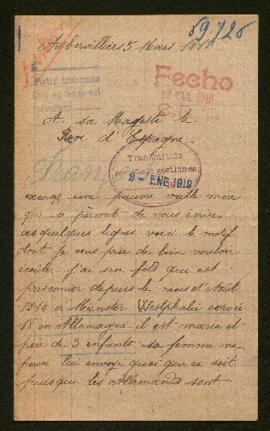 59.726
Aubervilliers 5 Mars
Fecho
Pedir informes
A sa Majesté le
Roi d'Espagne
Transmitido
9 - ENE 1918
excusez une pauvre vieille mere
qui se permet de vous écrire
ces quelques lignes voici le motif
dont je vous prie de bien vouloir
écouter j'ai son fils qui est
prisonnier depuis le mois d'Aout
1914 à Münster Westphalie corvée
18 en Allemagne il est marié et
père de 3 enfants sa femme ne
peux lui envoyé quoi que ce soit
puisque les Allemands sont